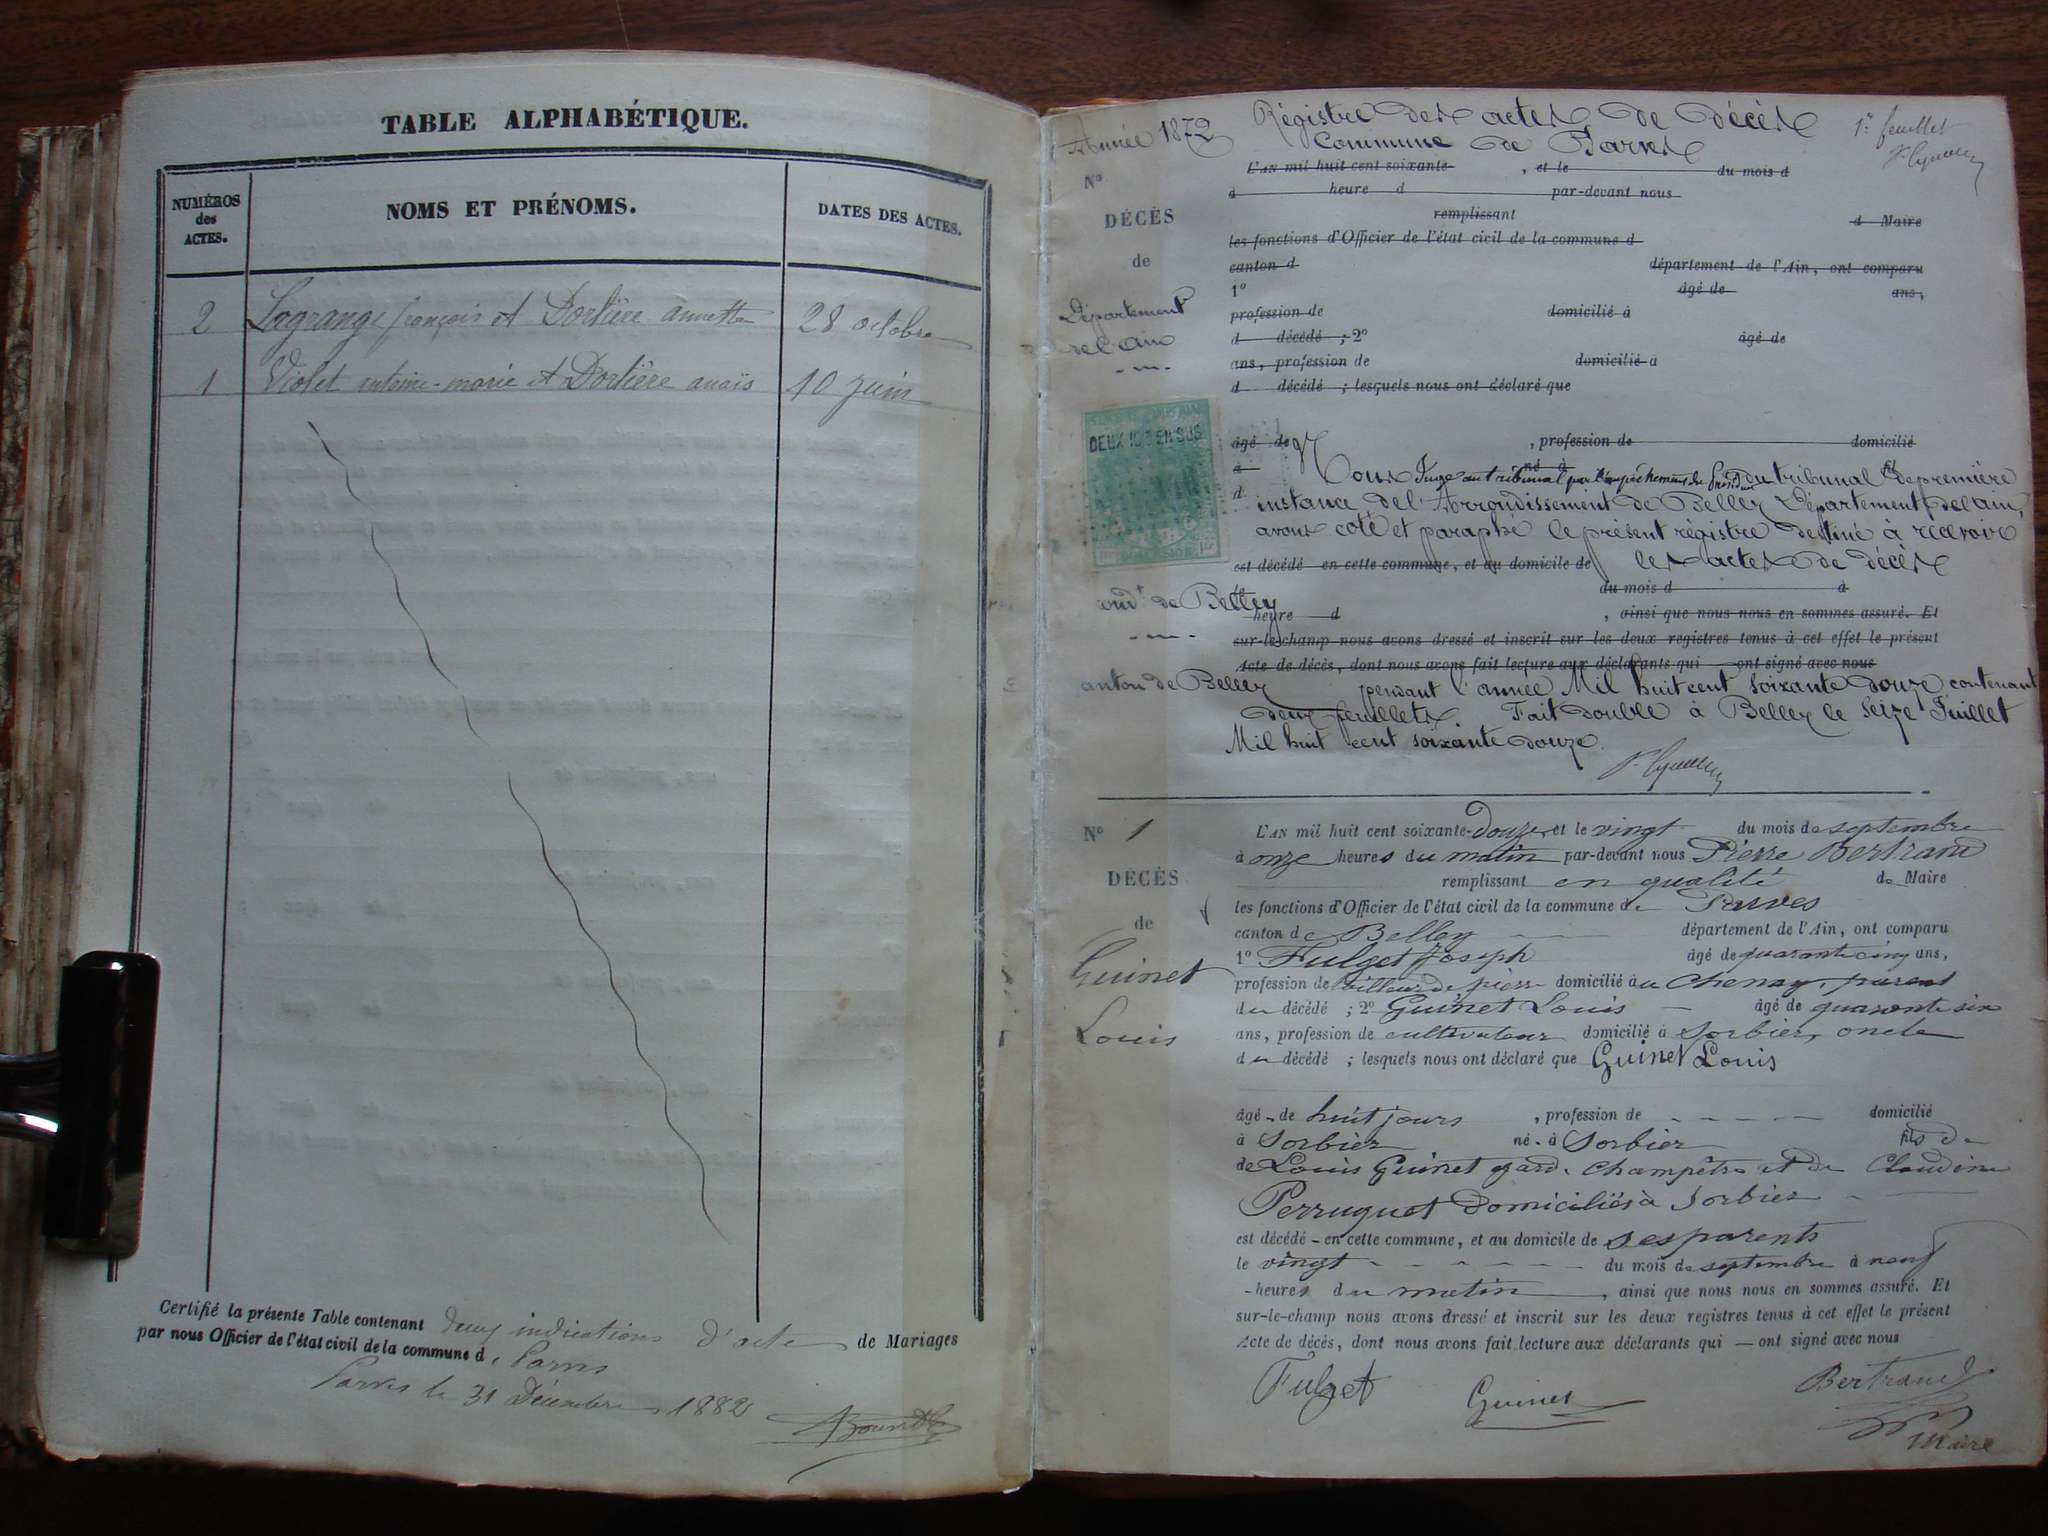 TABLE ALPHABÉTIQUE.
NUMÉROS des ACTES.
NOMS ET PRÉNOMS.
DATES DES ACTES.
2 Lagrange françois et Dorlière annette 28 octobre
1 Violet antoine-marie et Dorlière anaïs 10 juin
Certifié la présente Table contenant deux indications d'acte de Mariages
par nous Officier de l'état civil de la commune d. Parves
Parves le 31 Décembre 1882
Année 1872
Régistre des actes de décès
1er feuillet
Commune de Parves
No
L'AN mil huit cent soixante , et le du mois d
à heure d par-devant nous
DÉCÈS
remplissant d Maire
les fonctions d'Officier de l'état civil de la commune d
de
canton d département de l'Ain, ont comparu
1o âgé de ans,
Département
profession de domicilié à
de l'ain
d décédé ; 2o âgé de
ans, profession de domicilié à
d décédé ; lesquels nous ont déclaré que
DEUX 10es EN SUS
âgé de , profession de domicilié
à né à
d
Nous Juge au tribunal par l'empêchement du Président du tribunal de première
instance de l'Arrondissement de Belley Département de l'ain,
avons coté et paraphé le présent régistre destiné à recevoir
est décédé en cette commune, et au domicile de les actes de décès
le du mois d à
ond.t de Belley
heure d , ainsi que nous nous en sommes assuré. Et
sur-le-champ nous avons dressé et inscrit sur les deux registres tenus à cet effet le présent
Acte de décès, dont nous avons fait lecture aux déclarants qui ont signé avec nous
anton de Belley
pendant l'année Mil huit cent soixante douze contenant
deux feuillets. Fait double à Belley le Seize Juillet
Mil huit cent soixante douze.
No 1
L'AN mil huit cent soixante-douze et le vingt du mois de septembre
à onze heures du matin par-devant nous Pierre Bertrand
DÉCÈS
remplissant en qualité de Maire
de
les fonctions d'Officier de l'état civil de la commune de Parves
canton de Belley département de l'Ain, ont comparu
Guinet
1o Fulget Joseph âgé de quarante cinq ans,
profession de tailleur de pierre domicilié à au chenay, parent
du décédé ; 2o Guinet Louis âgé de quarante six
Louis
ans, profession de cultivateur domicilié à Sorbier, oncle
du décédé ; lesquels nous ont déclaré que Guinet Louis
âgé de huit jours , profession de domicilié
à Sorbier né à Sorbier fils de
de Louis Guinet garde champêtre et de Claudine
Perruquet Domiciliés à Sorbier
est décédé en cette commune, et au domicile de ses parents
le vingt du mois de septembre à neuf
heures du matin , ainsi que nous nous en sommes assuré. Et
sur-le-champ nous avons dressé et inscrit sur les deux registres tenus à cet effet le présent
Acte de décès, dont nous avons fait lecture aux déclarants qui — ont signé avec nous
Fulget Guinet Bertrand
Maire